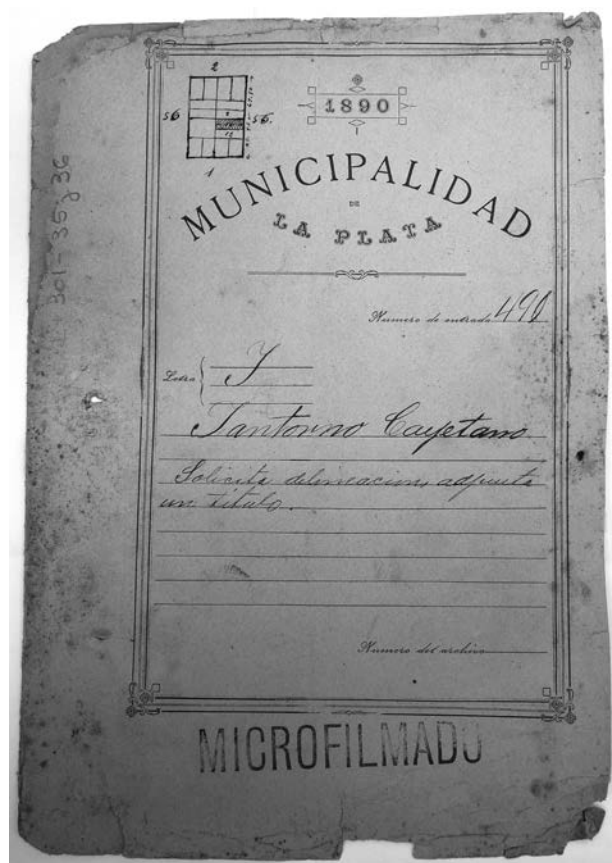 2
56
56.
1
1890
MUNICIPALIDAD
DE
LA PLATA
301-35y36
Numero de entrada 490
Letra
Cayetano
Solicita delineacion, adjunta
un titulo.
Numero del archivo
MICROFILMADO